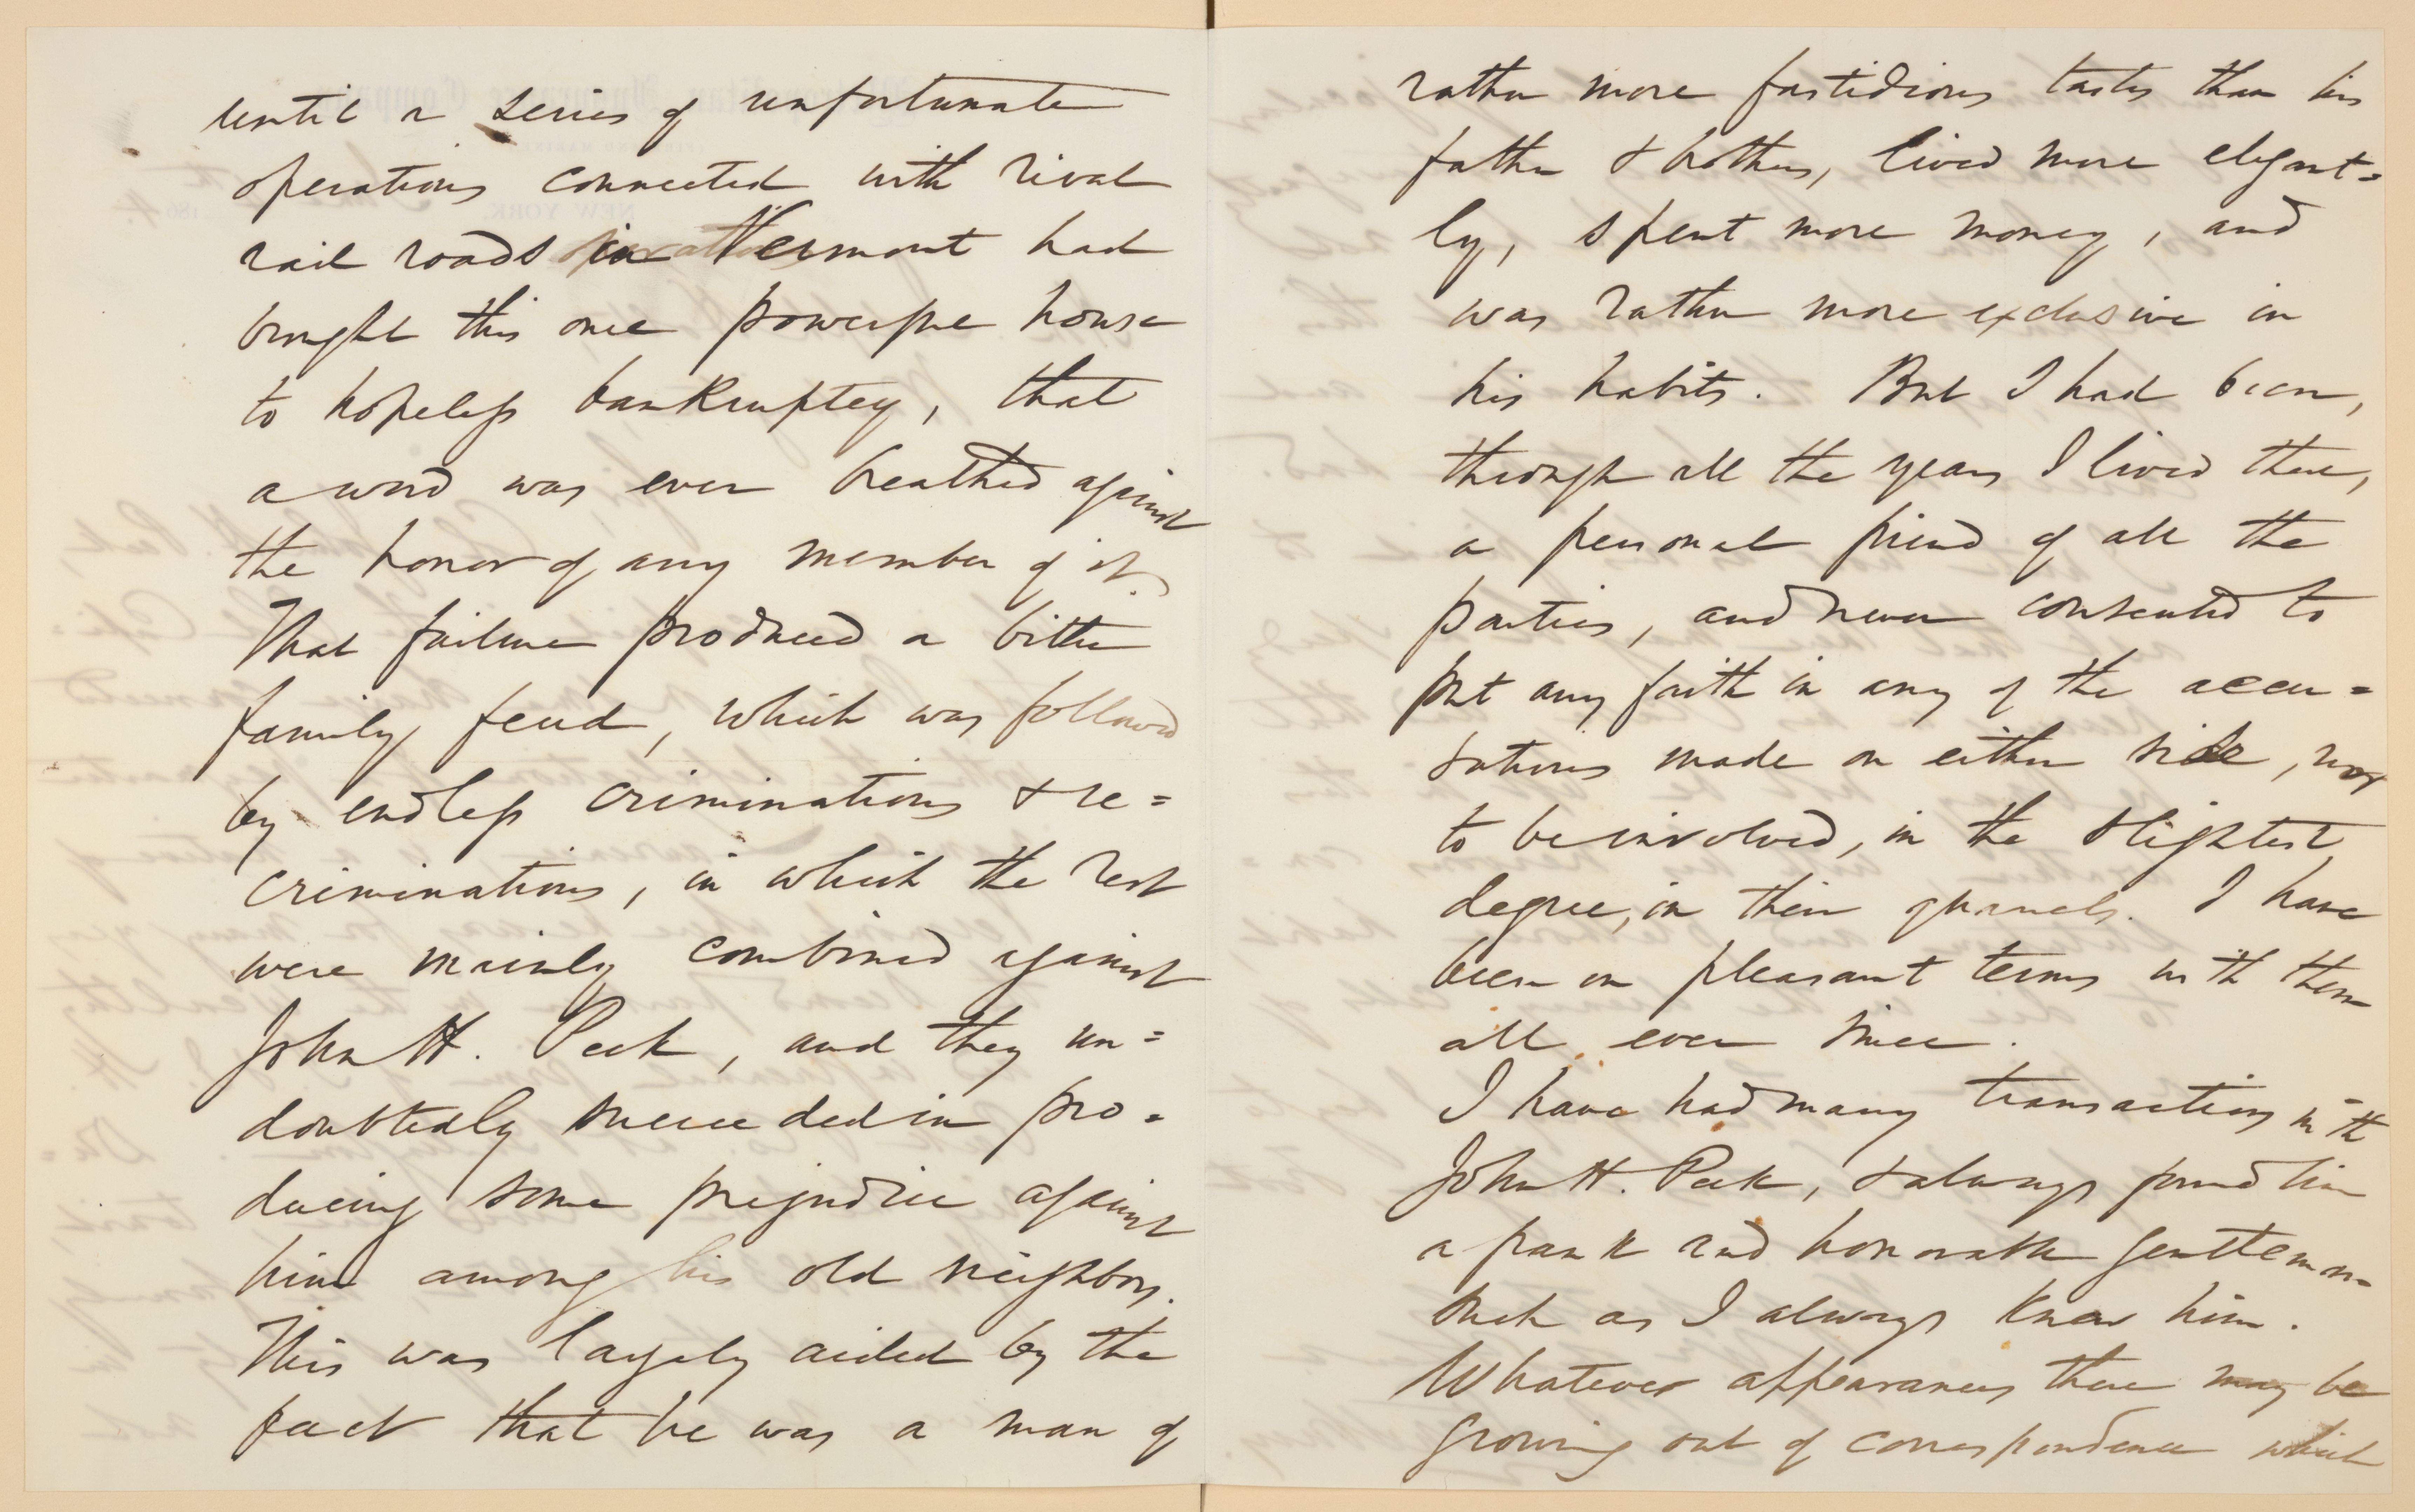 until a series of unfortunate
operations connected with rival
rail roads in Vermont had
brought this once powerful house
to hopeless bankruptcy, that
a word was ever breathed against
the honor of any member of it.
That failure produced a bitter
family feud, which was followed
by endless criminations & re=
criminations, in which the rest
were mainly combined against
John H. Peck, and they un=
doubtedly succeeded in pro=
ducing some prejudice against
him among his old neighbors.
This was largely aided by the
fact that he was a man of
rather more fastidious tastes than his
father & brothers, lived more elegant=
ly, spent more money, and
was rather more exclusive in
his habits. But I had been,
through all the years I lived there,
a personal friend of all the
parties, and never consented to
put any faith in any of the accu=
sations made on either side, nor
to be involved, in the slightest
degree, in their quarrels. I have
been on pleasant terms with them
all ever since.
I have had many transactions with
John H. Peck, & always found him
a frank and honorable gentleman
such as I always knew him.
Whatever appearances there may be
growing out of correspondence which